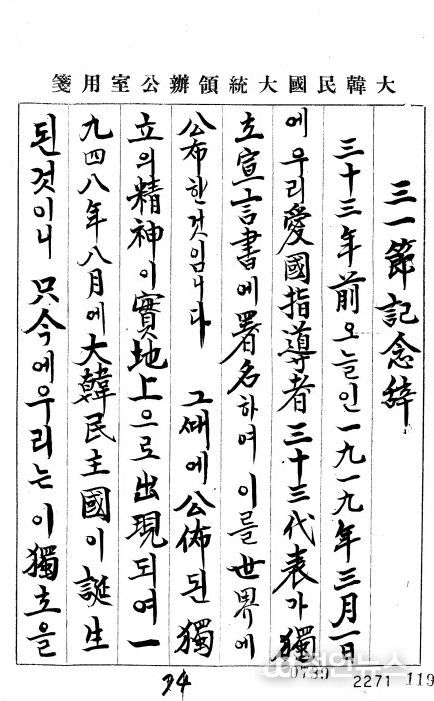 大韓民國大統領辦公室用箋
三一節記念辞
三十三年前오늘인一九一九年三月一日
에우리愛國指導者三十三代表가獨
立宣言書에署名하여이를世界에
公布한것입니다 그때에公佈된獨
立의精神이實地上으로出現되여一
九四八年八月에大韓民主國이誕生
된것이니 只今에우리는이獨立을
94
0739 2271 119
천안뉴스